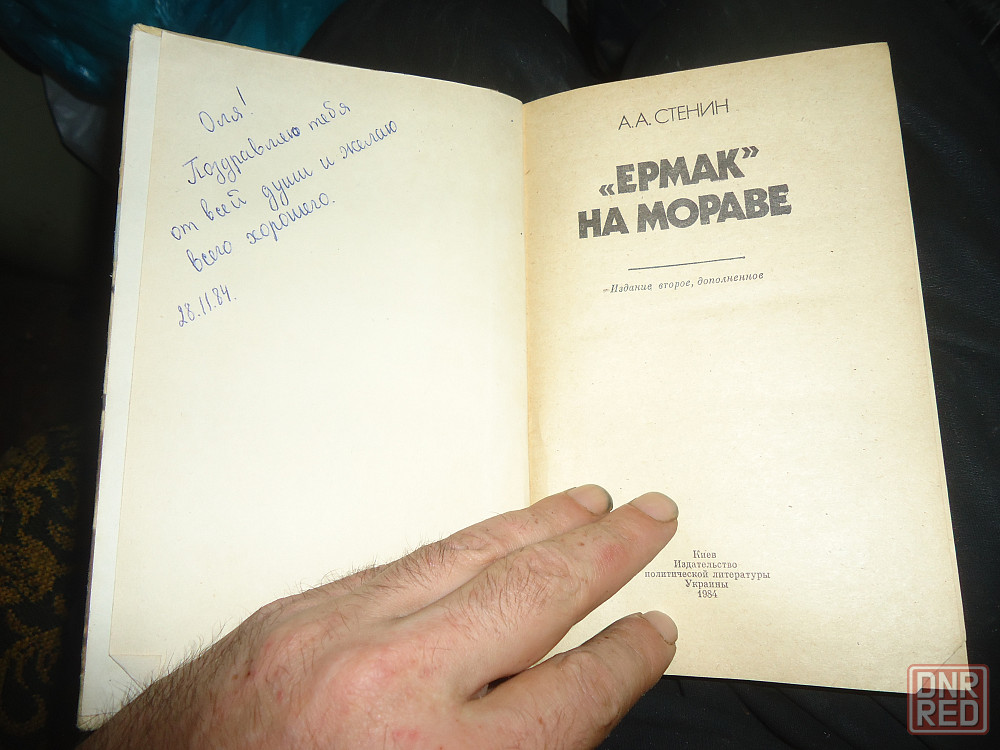 Оля!
Поздравляю тебя
от всей души и желаю
всего хорошего.
28.11.84.
А.А. СТЕНИН
«ЕРМАК»
НА МОРАВЕ
Издание второе, дополненное
Киев
Издательство
политической литературы
Украины
1984
DNR
RED